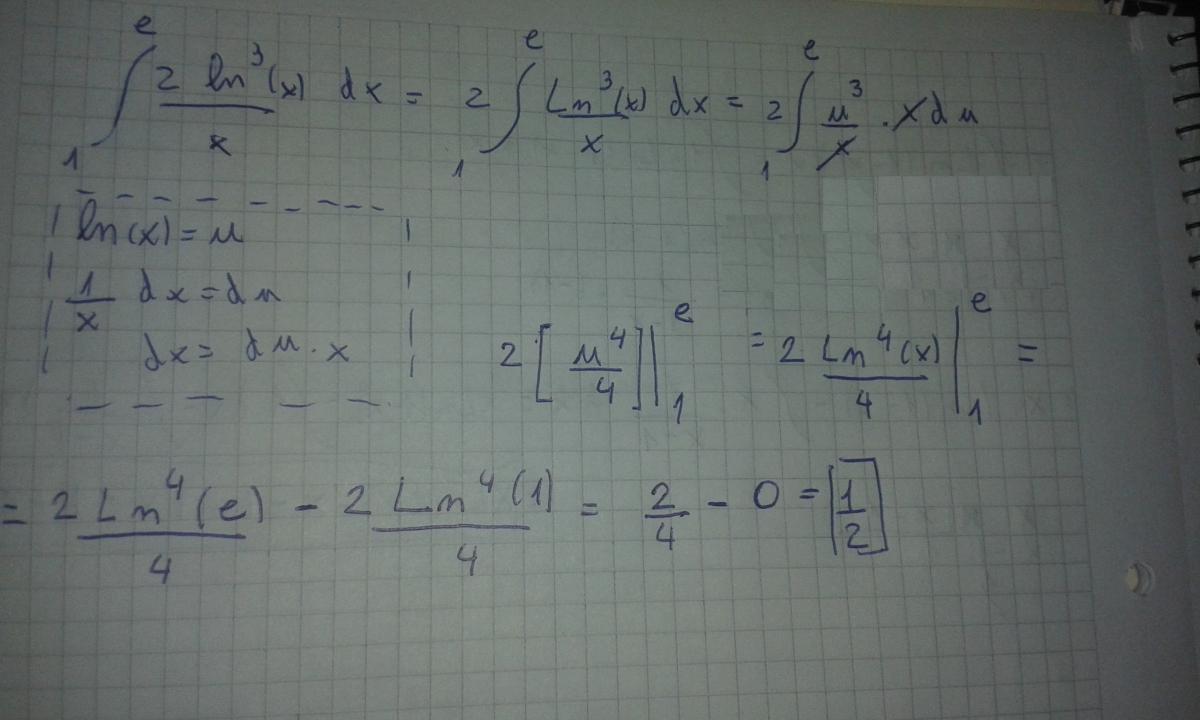 ∫₁ᵉ 2 ln³(x)/x dx = 2 ∫₁ᵉ Ln³(x)/x dx = 2 ∫₁ᵉ u³/x · x du
ln(x) = u
1/x dx = du
dx = du · x
2 [u⁴/4] |₁ᵉ = 2 Ln⁴(x)/4 |₁ᵉ =
= 2 Ln⁴(e)/4 - 2 Ln⁴(1)/4 = 2/4 - 0 = [1/2]